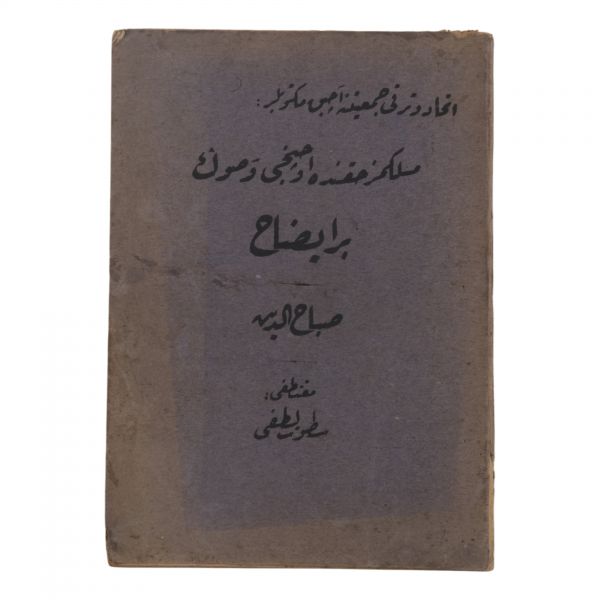 اتحاد وترقی جمعیتنه آچیق مکتوبلر:
مسلکمز حقنده اوچنجی وصوڭ
بر ایضاح
صباح الدین
مقتطفی:
سطوت لطفی